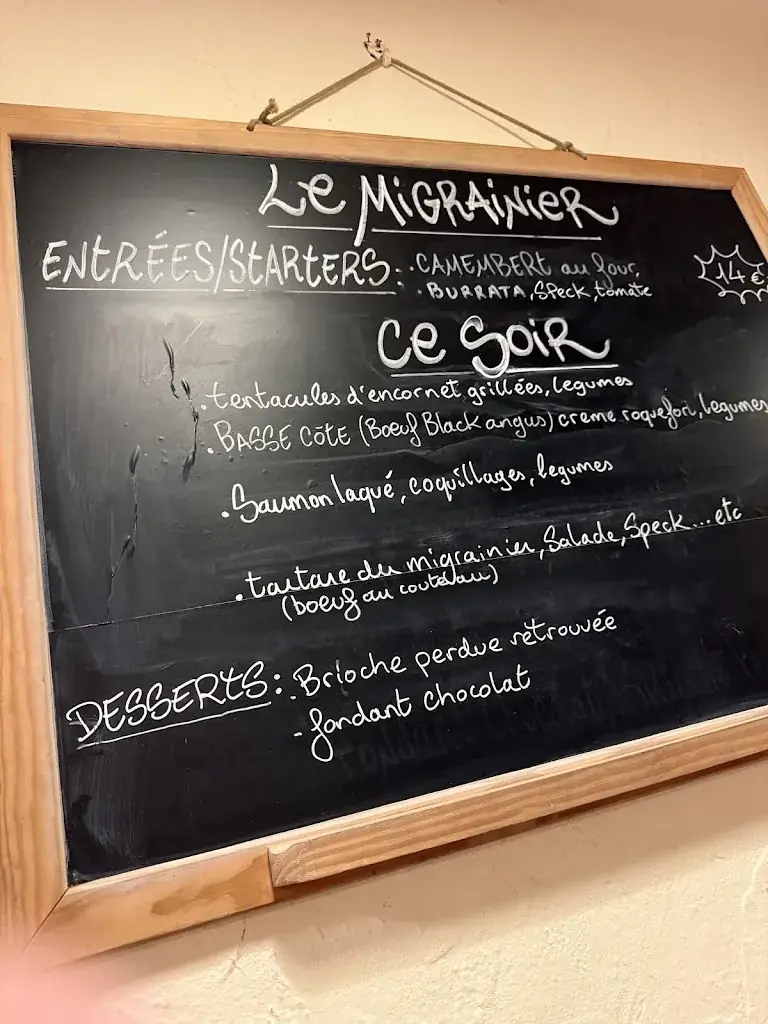 Le MiGRAiNieR
ENTRÉES/STARTERS: · CAMEMBERT au four,
· BURRATA, Speck, tomate
14 €
Ce SoiR
· tentacules d'encornet grillées, legumes
· BASSE CÔTE (Boeuf Black angus) creme roquefort, legumes
· Saumon laqué, coquillages, legumes
· tartare du migrainier, Salade, Speck... etc
(boeuf au couteau)
DESSERTS: - Brioche perdue retrouvée
- fondant chocolat